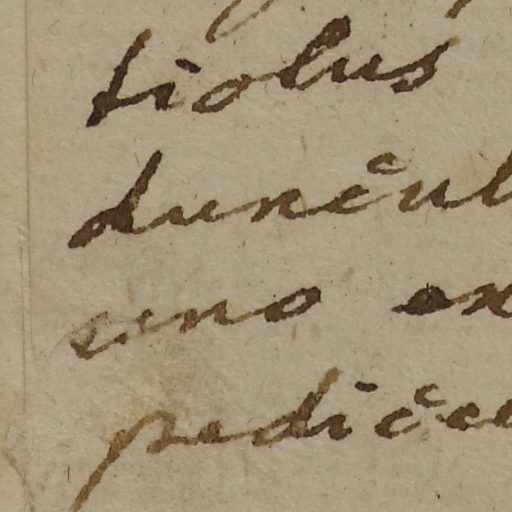 tiolus
duncul
uno ex
pedice